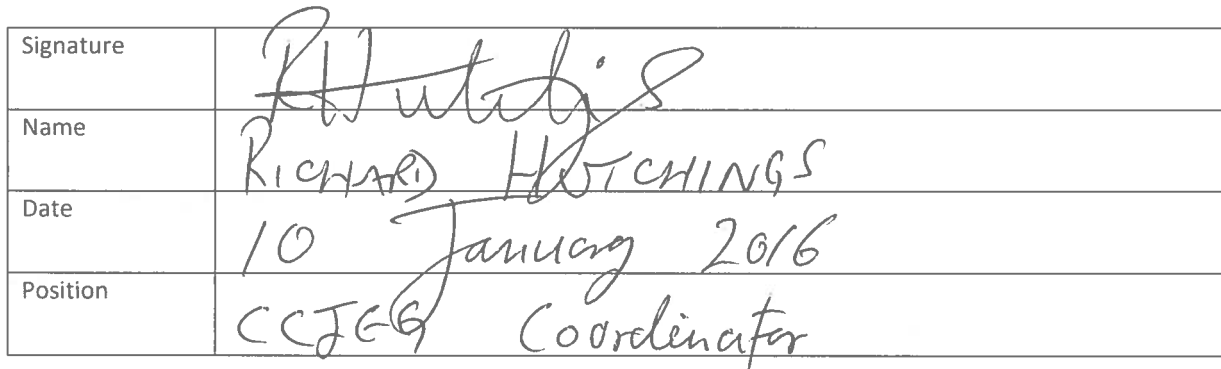 Signature RHutchings
Name RICHARD HUTCHINGS
Date 10 January 2016
Position CCJEG Coordinator